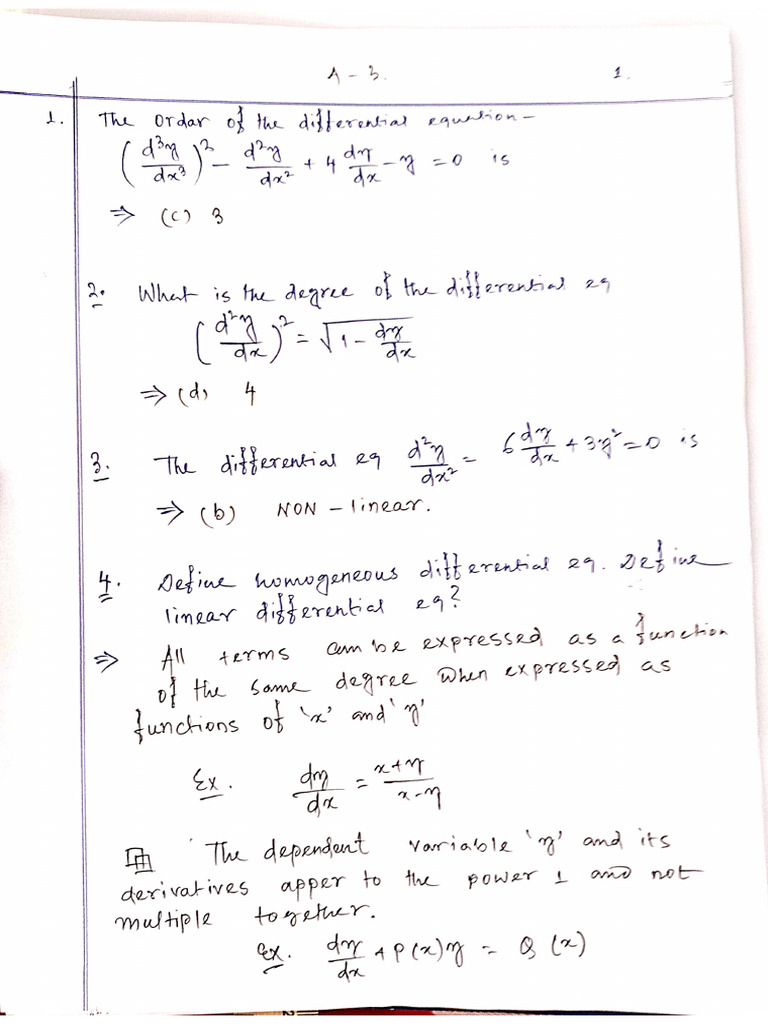 A - 3. 1.
1. The Ordar of the differential equation -
(d³y/dx³)² - d²y/dx² + 4 dy/dx - y = 0 is
⇒ (c) 3
2. What is the degree of the differential eq
(d²y/dx)² = √(1 - dy/dx)
⇒ (d) 4
3. The differential eq d²y/dx² = 6 dy/dx + 3y² = 0 is
⇒ (b) NON - linear.
4. Define homogeneous differential eq. Define
linear differential eq?
⇒ All terms can be expressed as a function
of the same degree when expressed as
functions of 'x' and 'y'
Ex. dy/dx = x+y/x-y
The dependent variable 'y' and its
derivatives apper to the power 1 and not
multiple together.
Ex. dy/dx + P(x)y = Q(x)